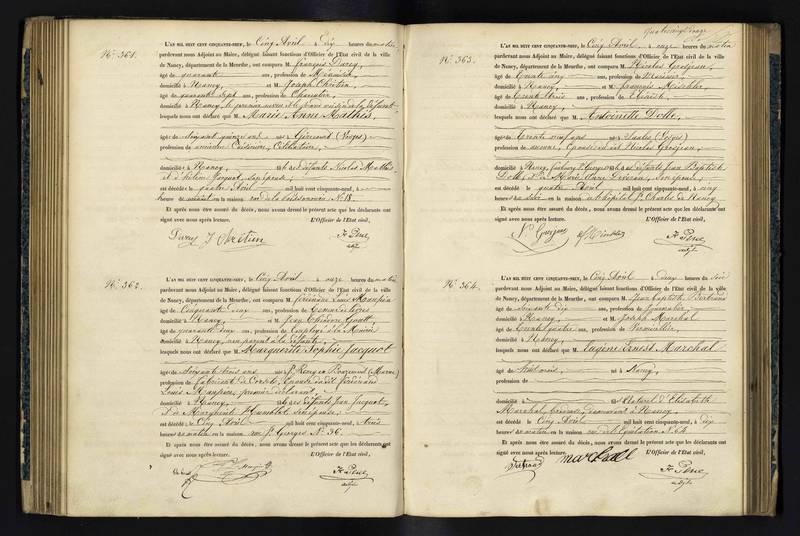 N° 361.
L'AN MIL HUIT CENT CINQUANTE-NEUF, le Cinq Avril à dix heures du matin
pardevant nous Adjoint au Maire, délégué faisant fonctions d'Officier de l'Etat civil de la ville
de Nancy, département de la Meurthe, ont comparu M. françois Durey,
âgé de quarante ans, profession de
domicilié à Nancy, et M. Joseph Chrétien,
âgé de quarante sept ans, profession de Chamelier,
domicilié à Nancy, le premier neveu et le second voisin de la défunte
lesquels nous ont déclaré que M. Marie Anne Mathis
âgée de soixante quinze ans née à Gérocourt (Vosges)
profession de ancienne Cuisinière, Célibataire,
domiciliée à Nancy, fille des défunts Nicolas Mathis
et d'hélène Jacquot, son épouse;
est décédée le quatre Avril mil huit cent cinquante-neuf, à
heure de en la maison rue de la Poissonnerie N° 18.
Et après nous être assuré du décès, nous avons dressé le présent acte que les déclarants ont
signé avec nous après lecture. L'Officier de l'Etat civil,
Durey J Chrétien
N° 362.
L'AN MIL HUIT CENT CINQUANTE-NEUF, le Cinq Avril à onze heures du matin
pardevant nous Adjoint au Maire, délégué faisant fonctions d'Officier de l'Etat civil de la ville
de Nancy, département de la Meurthe, ont comparu M. ferdinand Louis Maupin
âgé de Cinquante cinq ans, profession de
domicilié à Nancy, et M. Jean
âgé de quarante deux ans, profession de Employé à la Mairie
domicilié à Nancy, non parent à la défunte,
lesquels nous ont déclaré que M. Marguerite Sophie Jacquot
âgée de soixante trois ans née à St Remy en Bouzemont (Marne)
profession de fabricant de Corsets, Epouse du dit ferdinand
Louis Maupin, premier déclarant,
domiciliée à Nancy, fille des défunts Jean Jacquot,
& de Marguerite Humblot son épouse;
est décédée le Cinq Avril mil huit cent cinquante-neuf, à trois
heures du matin en la maison rue St Georges N° 36.
Et après nous être assuré du décès, nous avons dressé le présent acte que les déclarants ont
signé avec nous après lecture. L'Officier de l'Etat civil,
N° 363.
L'AN MIL HUIT CENT CINQUANTE-NEUF, le Cinq Avril à onze heures du matin
pardevant nous Adjoint au Maire, délégué faisant fonctions d'Officier de l'Etat civil de la ville
de Nancy, département de la Meurthe, ont comparu M. Nicolas Grosjean,
âgé de trente cinq ans, profession de
domicilié à Nancy, et M. françois
âgé de trente trois ans, profession de
domicilié à Nancy,
lesquels nous ont déclaré que M. Antoinette Dolle
âgée de trente ans née à Saales (Vosges)
profession de aucune, Epouse du dit Nicolas Grosjean,
domiciliée à Nancy, faubourg St Georges fille des défunts Jean Baptiste
Dolle, & de Marie Anne son épouse;
est décédée le quatre Avril mil huit cent cinquante-neuf, à cinq
heures du soir en la maison un hôpital St Charles de Nancy
Et après nous être assuré du décès, nous avons dressé le présent acte que les déclarants ont
signé avec nous après lecture. L'Officier de l'Etat civil,
N° 364.
L'AN MIL HUIT CENT CINQUANTE-NEUF, le Cinq Avril à deux heures du soir
pardevant nous Adjoint au Maire, délégué faisant fonctions d'Officier de l'Etat civil de la ville
de Nancy, département de la Meurthe, ont comparu M. Jean Baptiste Bertrand
âgé de soixante dix ans, profession de Journalier
domicilié à Nancy, et M. Joseph Marchal
âgé de trente quatre ans, profession de Vermicellier,
domicilié à Nancy,
lesquels nous ont déclaré que M. Eugène Ernest Marchal
âgé de huit mois, né à Nancy,
profession de
domicilié à fils naturel d'Elisabeth
Marchal, demeurant à Nancy,
est décédé le Cinq Avril mil huit cent cinquante-neuf, à dix
heures du matin en la maison
Et après nous être assuré du décès, nous avons dressé le présent acte que les déclarants ont
signé avec nous après lecture. L'Officier de l'Etat civil,
Bertrand marchal